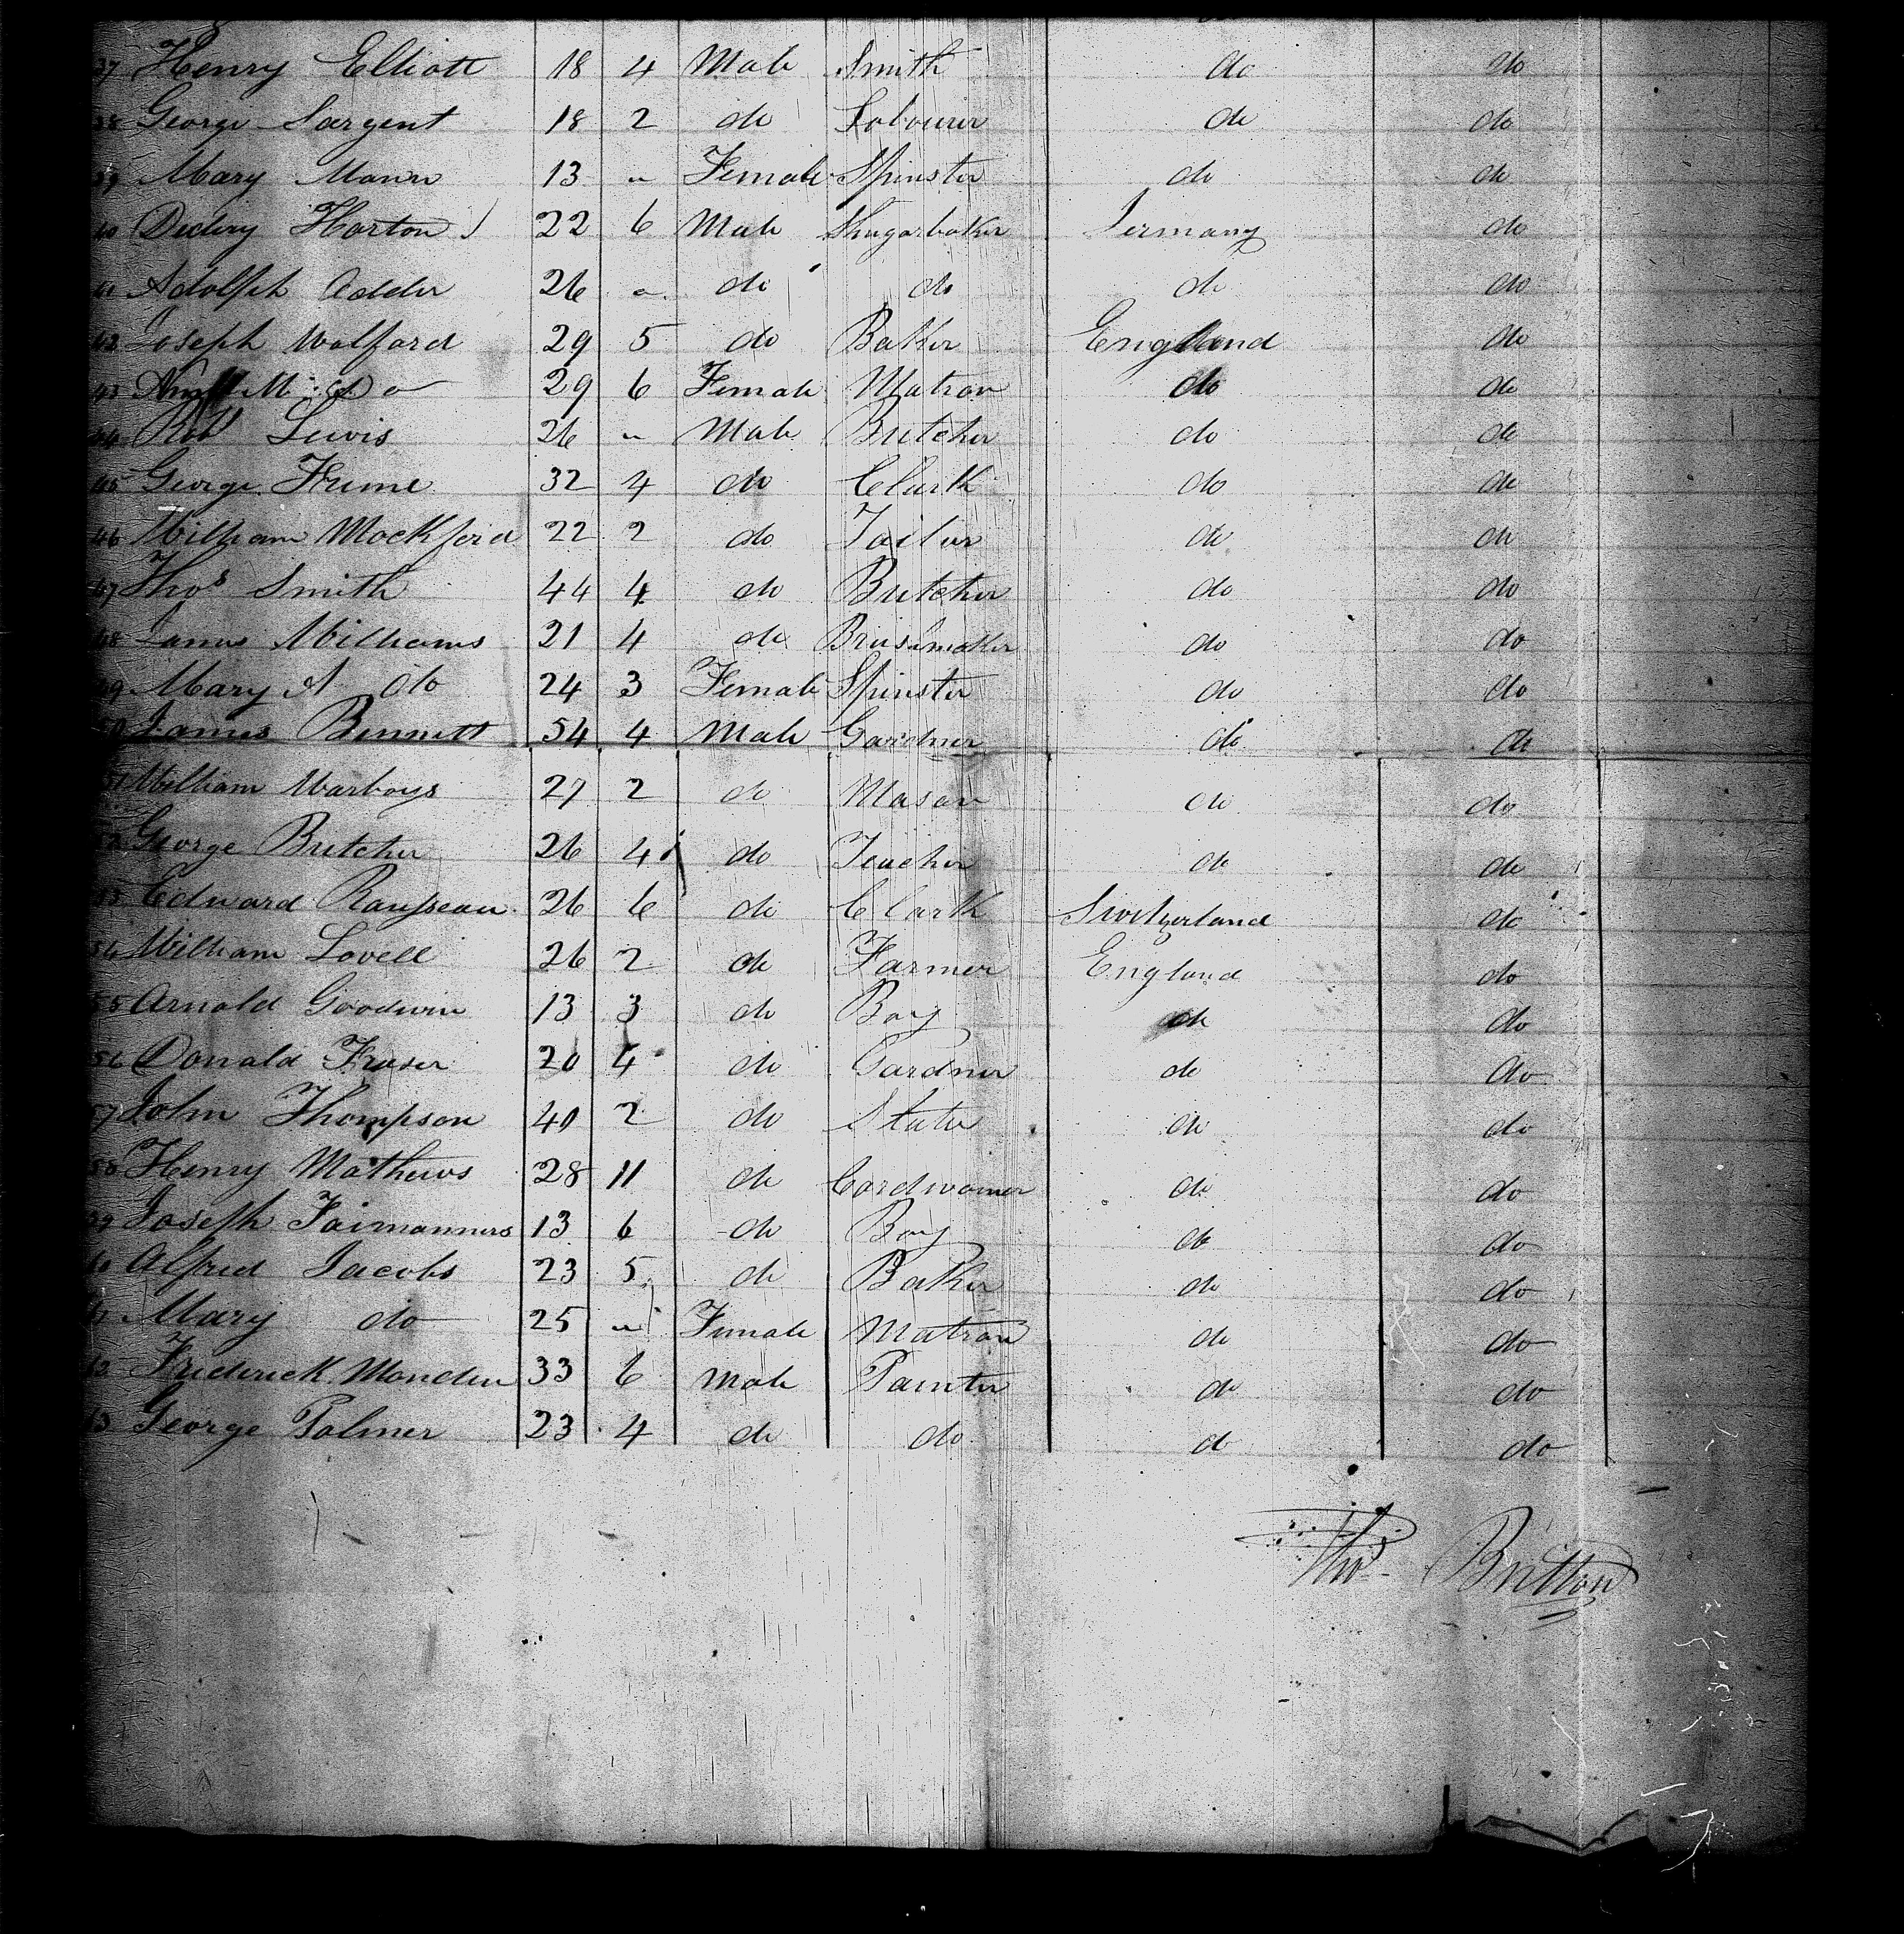 37 Henry Elliott 18 4 Male Smith do do
38 George Sargent 18 2 do Labourer do do
39 Mary Mann 13 " Female Spinster do do
40 Diedery Horton 22 6 Male Shugarbaker Germany do
41 Adolph Adder 26 " do do do do
42 Joseph Walford 29 5 do Baker England do
43 M. do 29 6 Female Matron do do
44 Robt Lewis 26 " Male Butcher do do
45 George Frume 32 4 do Clark do do
46 William Mockford 22 2 do Tailor do do
47 Thos Smith 44 4 do Butcher do do
48 James Williams 21 4 do Brushmaker do do
49 Mary A do 24 3 Female Spinster do do
50 James Bennett 54 4 Male Gardner do do
51 William Warboys 27 2 do Mason do do
52 George Butcher 26 4 do Teacher do do
53 Edward Rousseau 26 6 do Clark Switzerland do
54 William Lovell 26 2 do Farmer England do
55 Arnold Goodwin 13 3 do Boy do do
56 Donald Fraser 20 4 do Gardner do do
57 John Thompson 40 2 do Slater do do
58 Henry Mathews 28 11 do Cordwainer do do
59 Joseph Faimanners 13 6 do Boy do do
60 Alfred Jacobs 23 5 do Baker do do
61 Mary do 25 " Female Matron do do
62 Frederick Monden 33 6 Male Painter do do
63 George Palmer 23 4 do do do do
Thos Britton